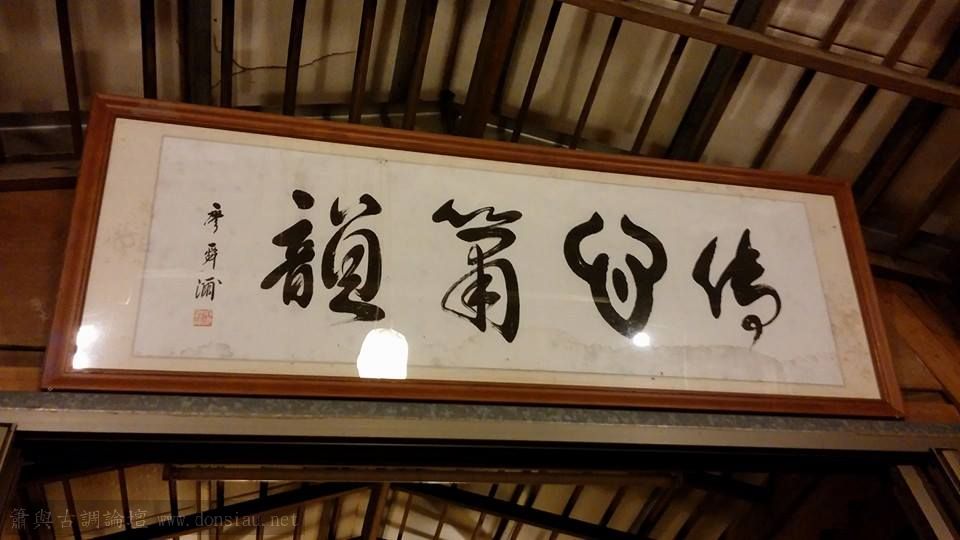 傳心簫韻
簫與古調論壇 www.donsiau.net